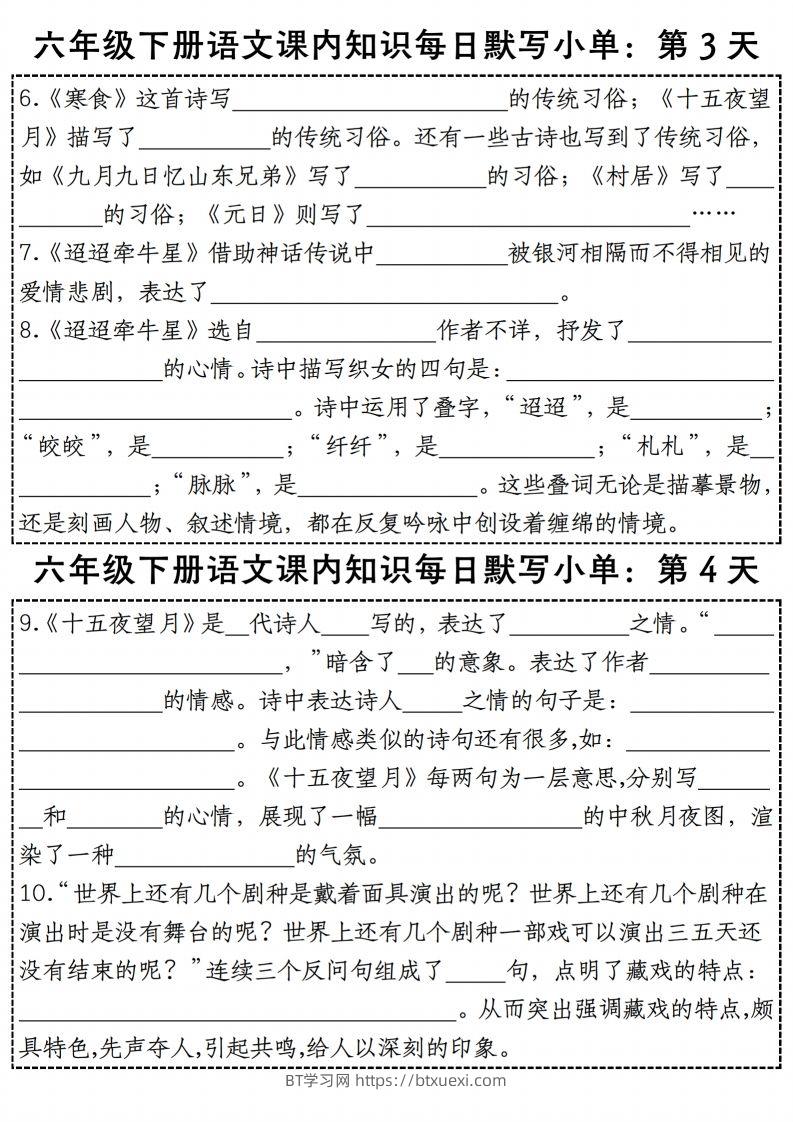 六年级下册语文课内知识每日默写小单：第 3 天
6.《寒食》这首诗写_______________________的传统习俗；《十五夜望
月》描写了___________的传统习俗。还有一些古诗也写到了传统习俗，
如《九月九日忆山东兄弟》写了___________的习俗；《村居》写了____
_______的习俗；《元日》则写了___________________________……
7.《迢迢牵牛星》借助神话传说中___________被银河相隔而不得相见的
爱情悲剧，表达了_____________________________。
8.《迢迢牵牛星》选自_______________作者不详，抒发了____________
____________的心情。诗中描写织女的四句是：______________________
_______________________。诗中运用了叠字，“迢迢”，是___________；
“皎皎”，是___________；“纤纤”，是_____________；“札札”，是__
___________；“脉脉”，是_______________。这些叠词无论是描摹景物，
还是刻画人物、叙述情境，都在反复吟咏中创设着缠绵的情境。
六年级下册语文课内知识每日默写小单：第 4 天
9.《十五夜望月》是__代诗人____写的，表达了__________之情。“_____
______________________，”暗含了___的意象。表达了作者__________
____________的情感。诗中表达诗人_____之情的句子是：____________
__________________。与此情感类似的诗句还有很多,如：____________
__________________。《十五夜望月》每两句为一层意思,分别写______
__和________的心情，展现了一幅_________________的中秋月夜图，渲
染了一种_______________的气氛。
10.“世界上还有几个剧种是戴着面具演出的呢？世界上还有几个剧种在
演出时是没有舞台的呢？世界上还有几个剧种一部戏可以演出三五天还
没有结束的呢？”连续三个反问句组成了_____句，点明了藏戏的特点：
____________________________________。从而突出强调藏戏的特点,颇
具特色,先声夺人,引起共鸣,给人以深刻的印象。
BT学习网 https://btxuexi.com